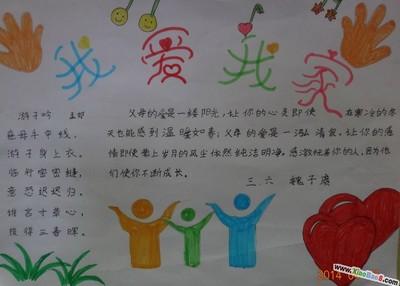 我爱我家
游子吟 孟郊
慈母手中线,
游子身上衣。
临行密密缝,
意恐迟迟归。
谁言寸草心,
报得三春晖。
父母的爱是一缕阳光,让你的心灵即使在寒冷的冬
天也能感到温暖如春;父母的爱是一泓清泉,让你的感
情即使蒙上岁月的风尘依然纯洁明净。感激抚养你的人,因为他
们使你不断成长。
三.六 魏子
2014
www.XiaoBao8.com